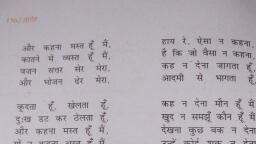 और कहना मस्त हूँ मैं,
कातने में व्यस्त हूँ मैं,
वजन सत्तर सेर मेरा,
और भोजन ढेर मेरा,
कूदता हूँ, खेलता हूँ,
दुःख डट कर ठेलता हूँ,
और कहना मस्त हूँ मैं,
हाय रे, ऐसा न कहना,
है कि जो वैसा न कहना,
कह न देना जागता हूँ,
आदमी से भागता हूँ,
कह न देना मौन हूँ मैं,
खुद न समझूँ कौन हूँ मैं,
देखना कुछ बक न देना